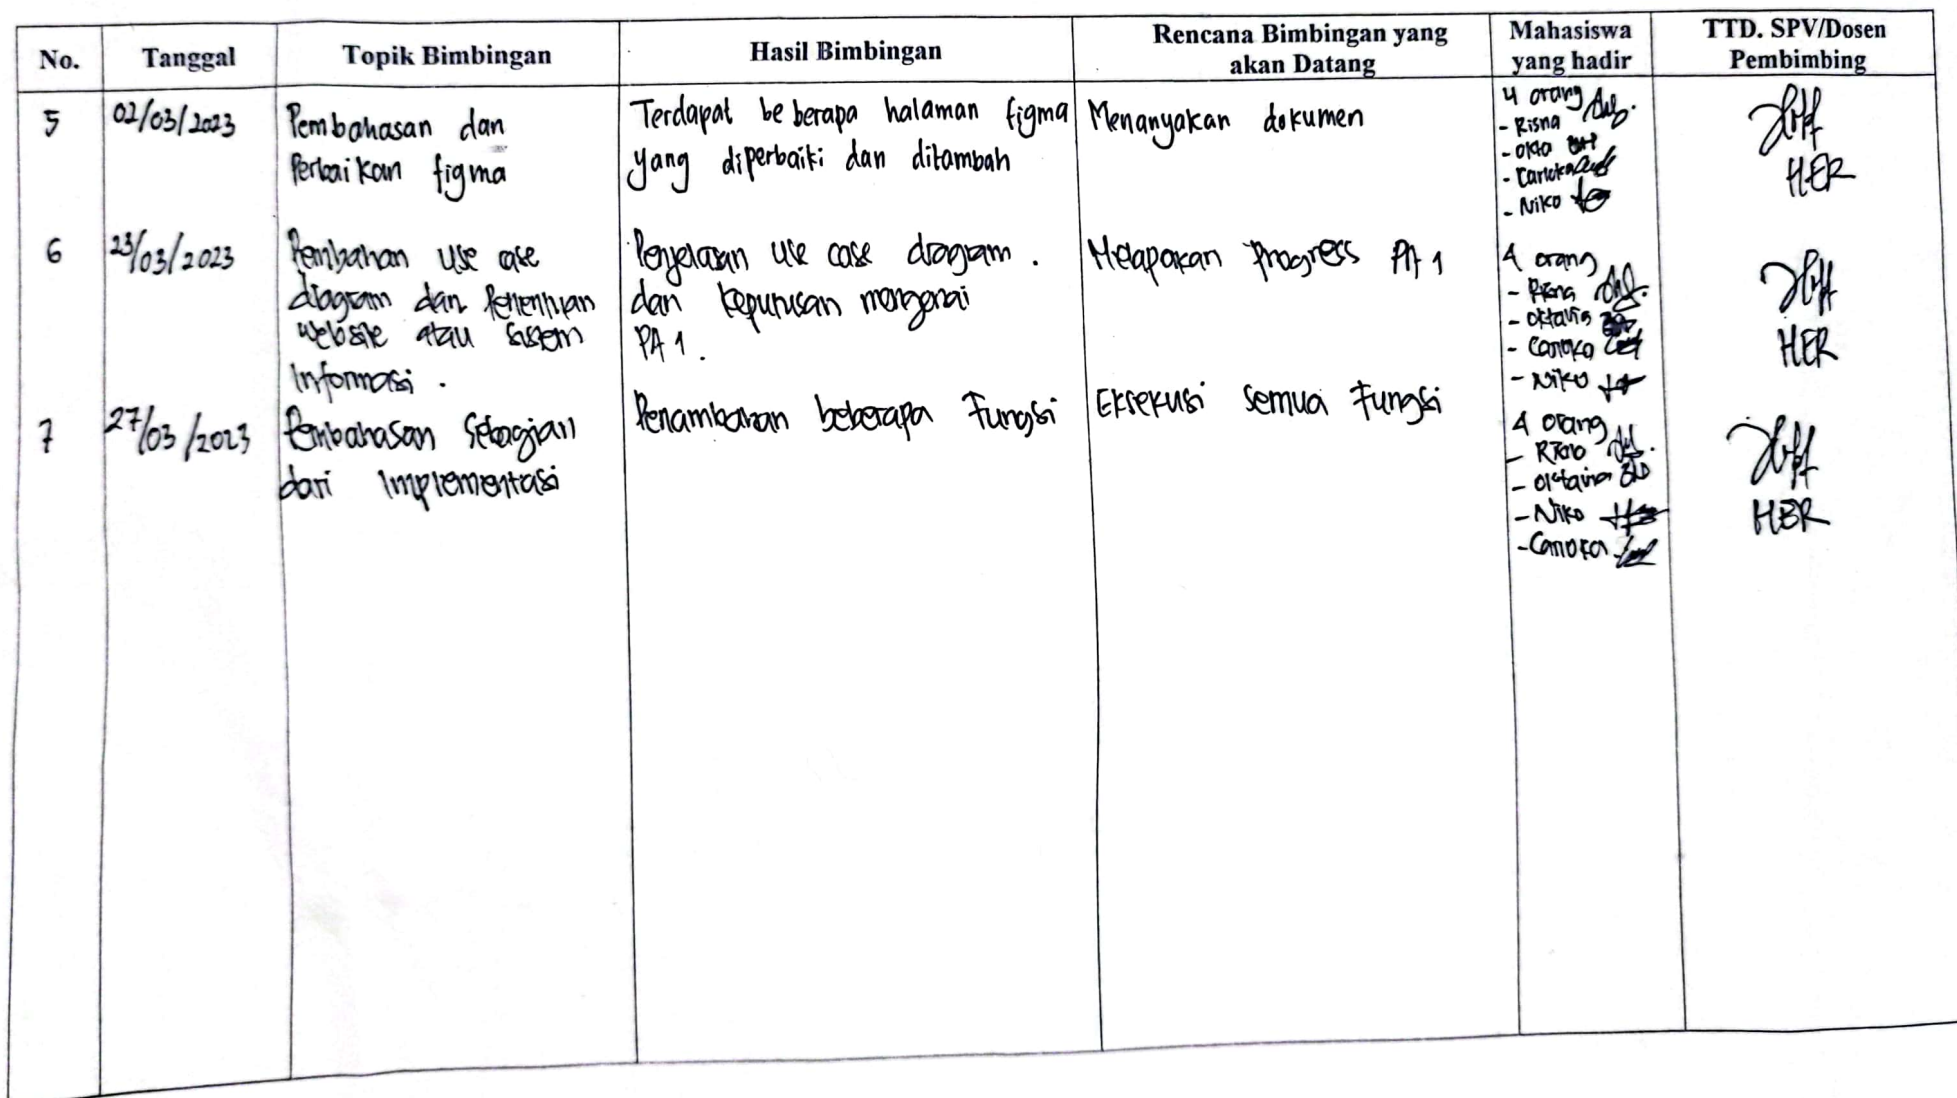 No.
Tanggal
Topik Bimbingan
Hasil Bimbingan
Rencana Bimbingan yang
akan Datang
Mahasiswa
yang hadir
TTD. SPV/Dosen
Pembimbing
5
02/03/2023
Pembahasan dan
Perbaikan figma
Terdapat beberapa halaman figma
yang diperbaiki dan ditambah
Menanyakan dokumen
4 orang
- Risna
- Okta
- Carloka
- Niko
HER
6
23/03/2023
Pembahan use case
diagram dan Penentuan
website atau sistem
Informasi .
Penjelasan use case diagram .
dan keputusan mengenai
PA 1 .
Melaporkan Progress PA 1
4 orang
- Risna
- Oktavia
- Niko
HER
7
27/03/2023
Pembahasan Sebagian
dari Implementasi
Penambahan beberapa Fungsi
Eksekusi semua Fungsi
4 orang
- Oktavia
- Niko
HER